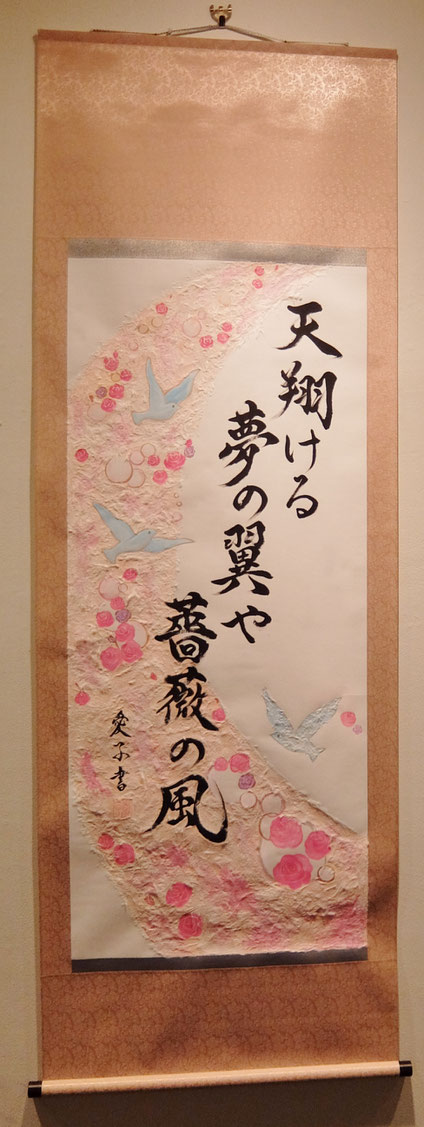 天翔ける
夢の翼や
薔薇の風
愛子書